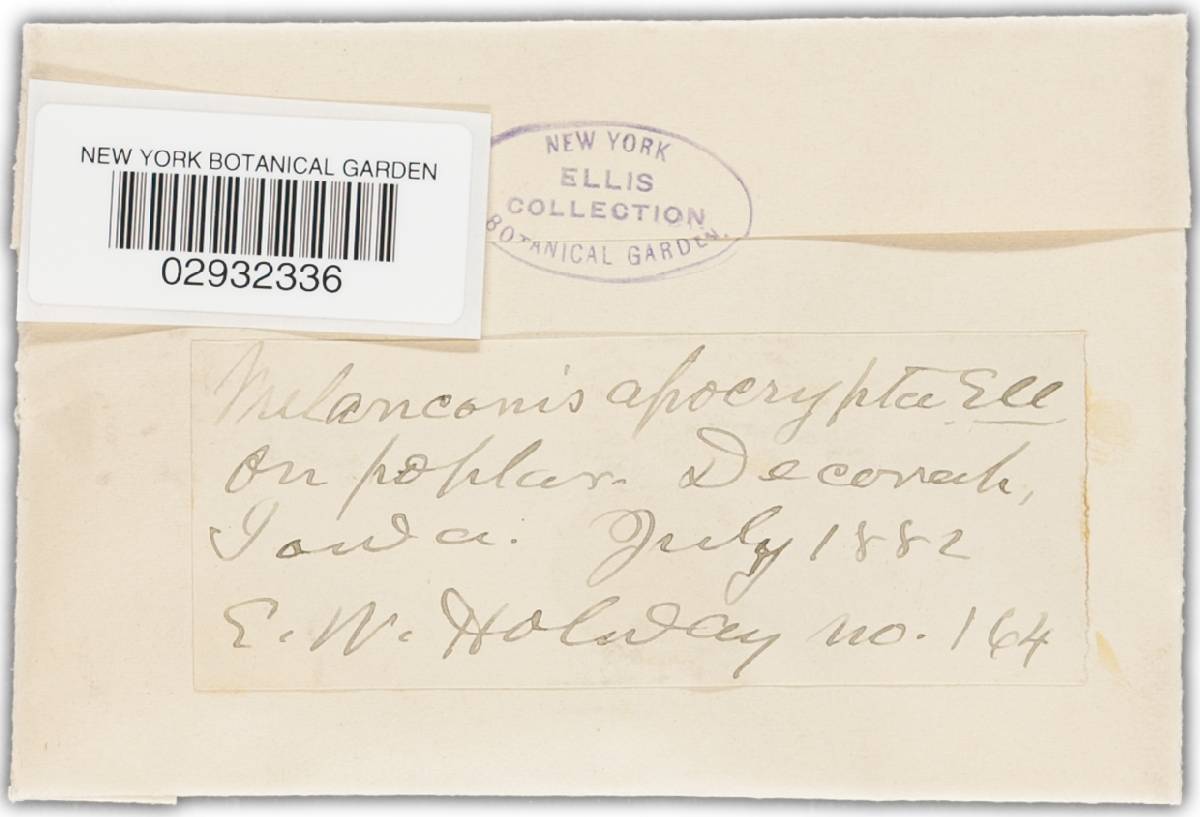 NEW YORK BOTANICAL GARDEN
02932336
NEW YORK
ELLIS
COLLECTION
BOTANICAL GARDEN.
Melanconis apocrypta Ell
on poplar. Decorah,
Iowa. July 1882
E. W. Holway no. 164